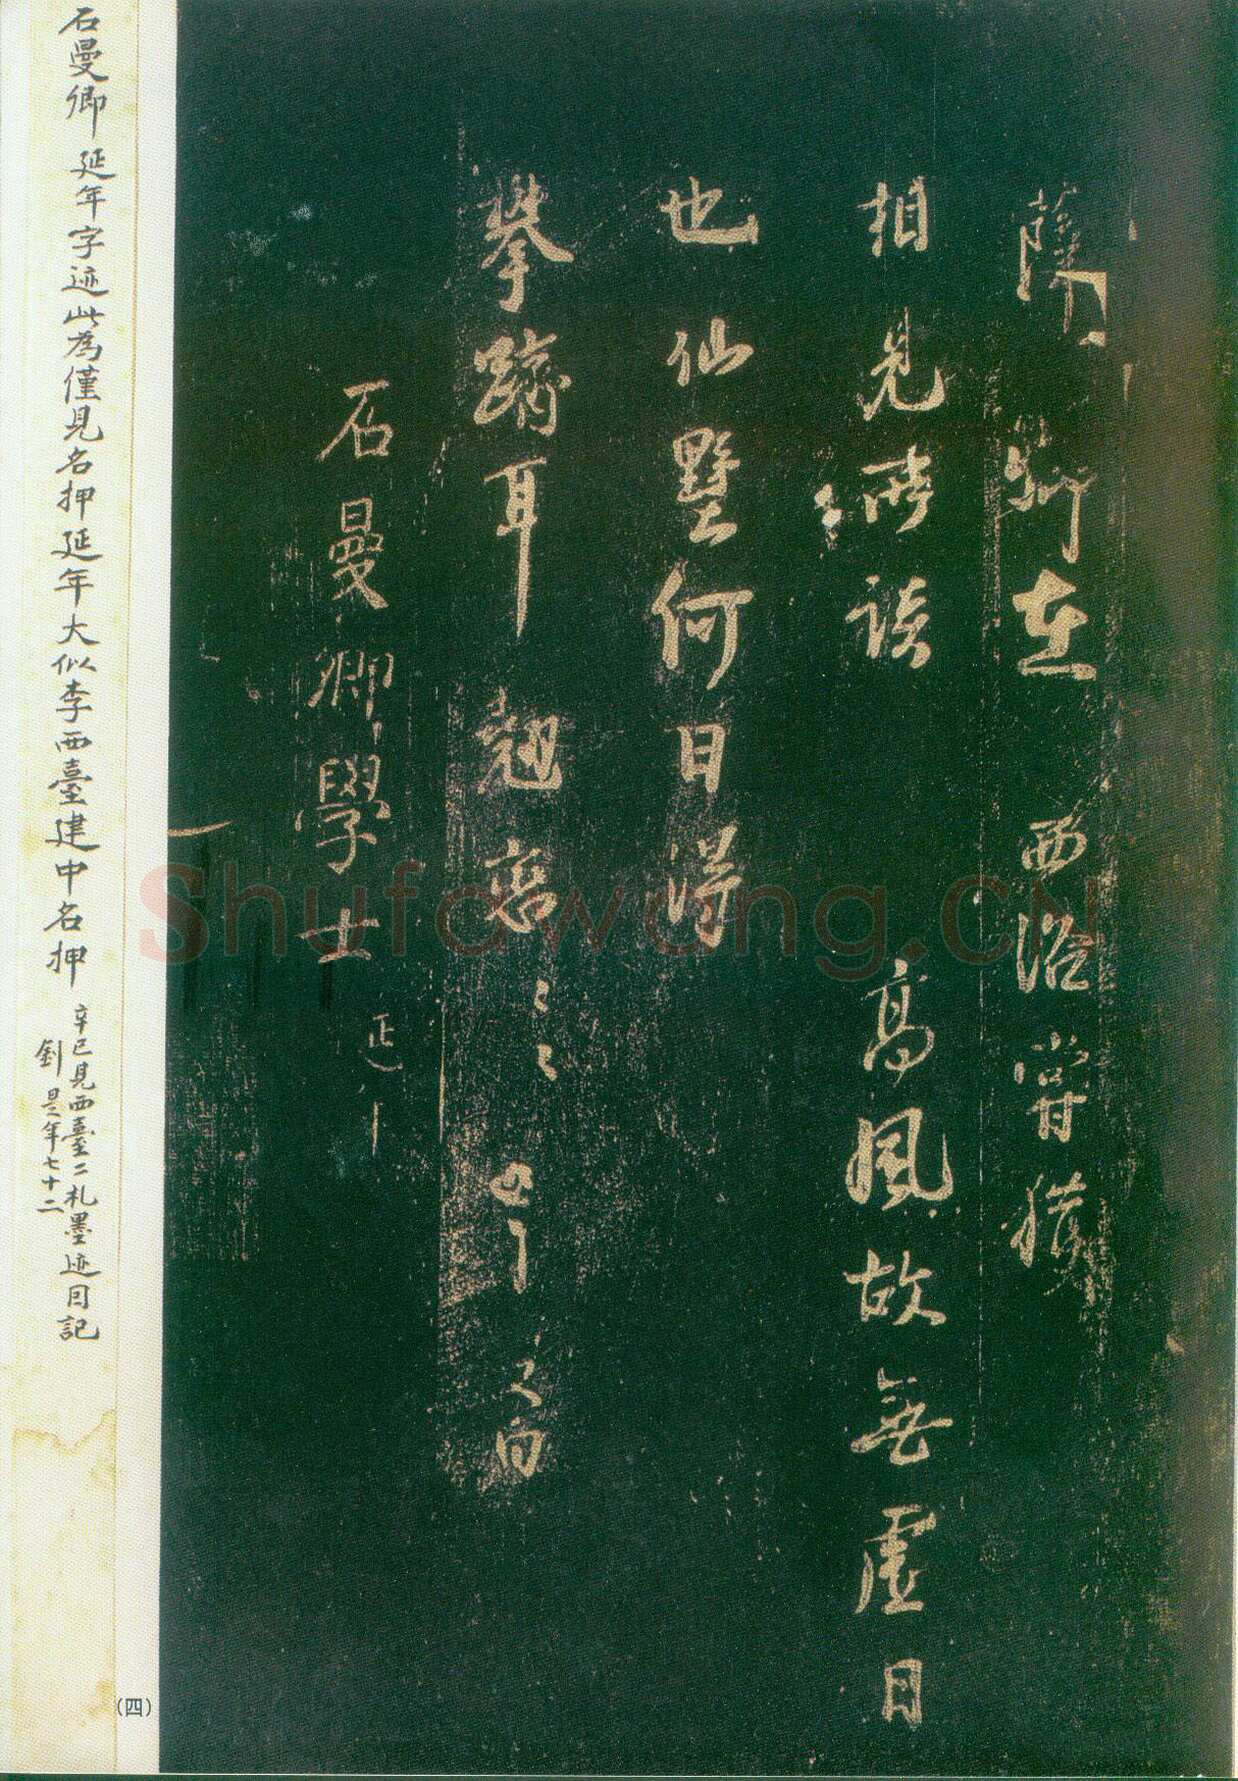 薛卿在西洛嘗獲
相見所談高風故無虛日
也仙墅何日得
攀躋耳翹企
石曼卿學士延年
石曼卿延年字迹此為僅見名押延年大似李西臺建中名押
辛巳見西臺二札墨迹因記
釗是年七十二
(四)
Shufawang.CN